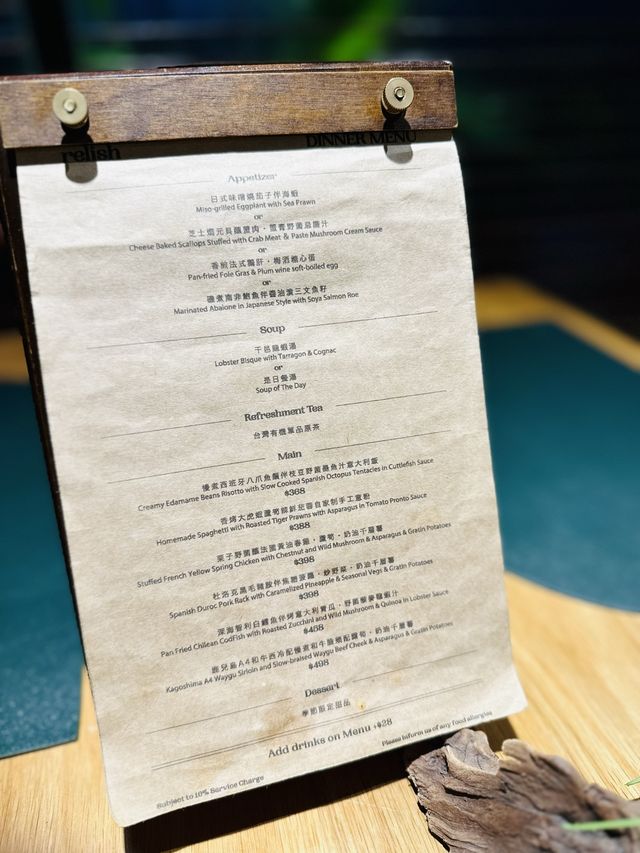 relish
DINNER MENU
Appetizer
日式味噌燒茄子伴海蝦
Miso-grilled Eggplant with Sea Prawn
or
芝士焗元貝釀蟹肉
Cheese Baked Scallops Stuffed with Crab Meat & Paste Mushroom Cream Sauce
or
香煎法式鴨肝・梅酒糖心蛋
Pan-fried Foie Gras & Plum wine soft-boiled egg
or
慢煮南非鮑魚伴醬油漬三文魚籽
Marinated Abalone in Japanese Style with Soya Salmon Roe
Soup
干邑龍蝦湯
Lobster Bisque with Tarragon & Cognac
or
是日餐湯
Soup of The Day
Refreshment Tea
台灣有機單品原茶
Main
慢煮西班牙八爪魚鬚伴枝豆野菌墨魚汁意大利飯
Creamy Edamame Beans Risotto with Slow Cooked Spanish Octopus Tentacles in Cuttlefish Sauce
$368
香烤大虎蝦蘆筍鮮茄蓉自家制手工意粉
Homemade Spaghetti with Roasted Tiger Prawns with Asparagus in Tomato Pronto Sauce
$388
栗子野菌釀法國黃油春雞・蘆筍・奶油千層薯
Stuffed French Yellow Spring Chicken with Chestnut and Wild Mushroom & Asparagus & Gratin Potatoes
$398
杜洛克黑毛豬鞍伴焦糖菠蘿・炒野菜・奶油千層薯
Spanish Duroc Pork Rack with Caramelized Pineapple & Seasonal Vegs & Gratin Potatoes
$398
深海智利白鱈魚伴烤意大利青瓜・野菌藜麥龍蝦汁
Pan Fried Chilean CodFish with Roasted Zucchini and Wild Mushroom & Quinoa in Lobster Sauce
$468
鹿兒島A4和牛西冷配慢煮和牛臉頰配蘆筍・奶油千層薯
Kagoshima A4 Waygu Sirloin and Slow-braised Waygu Beef Cheek & Asparagus & Gratin Potatoes
$498
Dessert
季節限定甜品
Add drinks on Menu +$28
Subject to 10% Service Charge
Please inform us of any food allergies